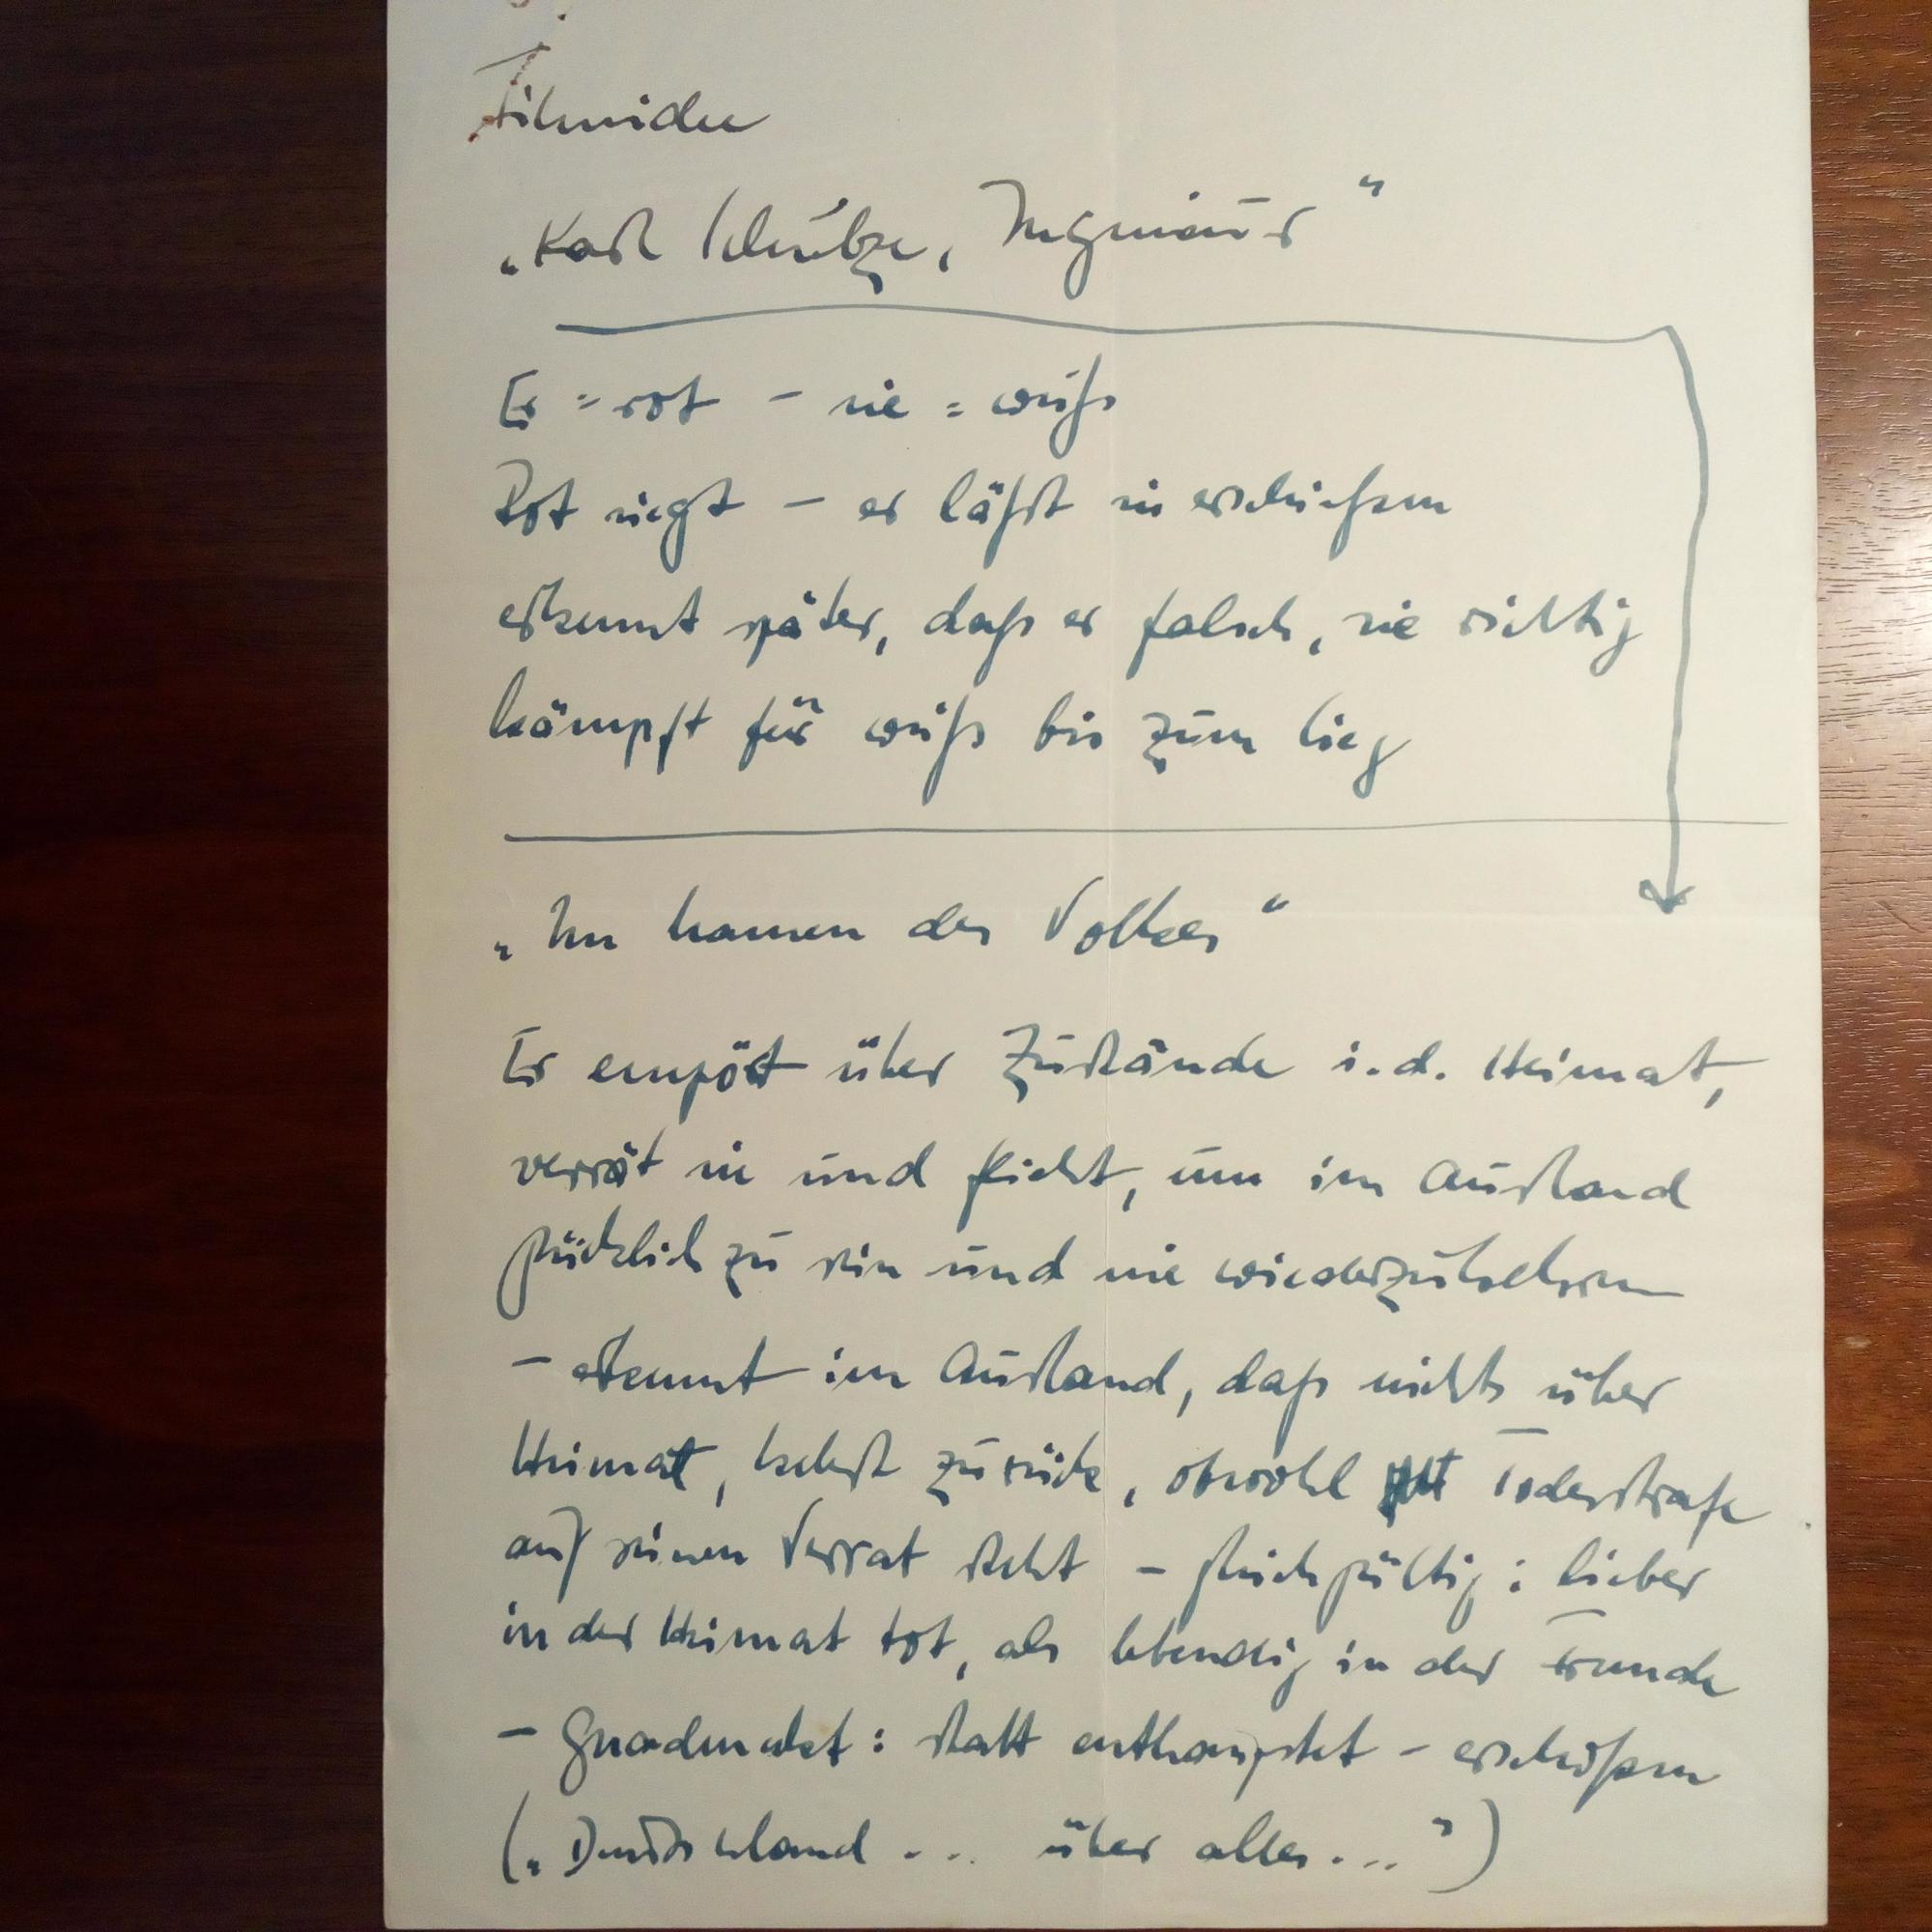 Filmidee
„Karl Schütze, Ingenieur“
Er = rot – sie = weiß
Rot siegt – er läßt sie erschießen
erkennt später, daß er falsch, sie richtig
kämpft für weiß bis zum Sieg
„Im Namen des Volkes“
Er empört über Zustände i. d. Heimat,
verrät sie und flieht, um im Ausland
glücklich zu sein und nie wiederzukehren
– erkennt im Ausland, daß nichts über
Heimat, kehrt zurück, obwohl Todesstrafe
auf seinen Verrat steht – gleichgültig: lieber
in der Heimat tot, als lebendig in der Fremde
– Gnadenakt: statt enthauptet – erschossen
(„Deutschland ... über alles...“)